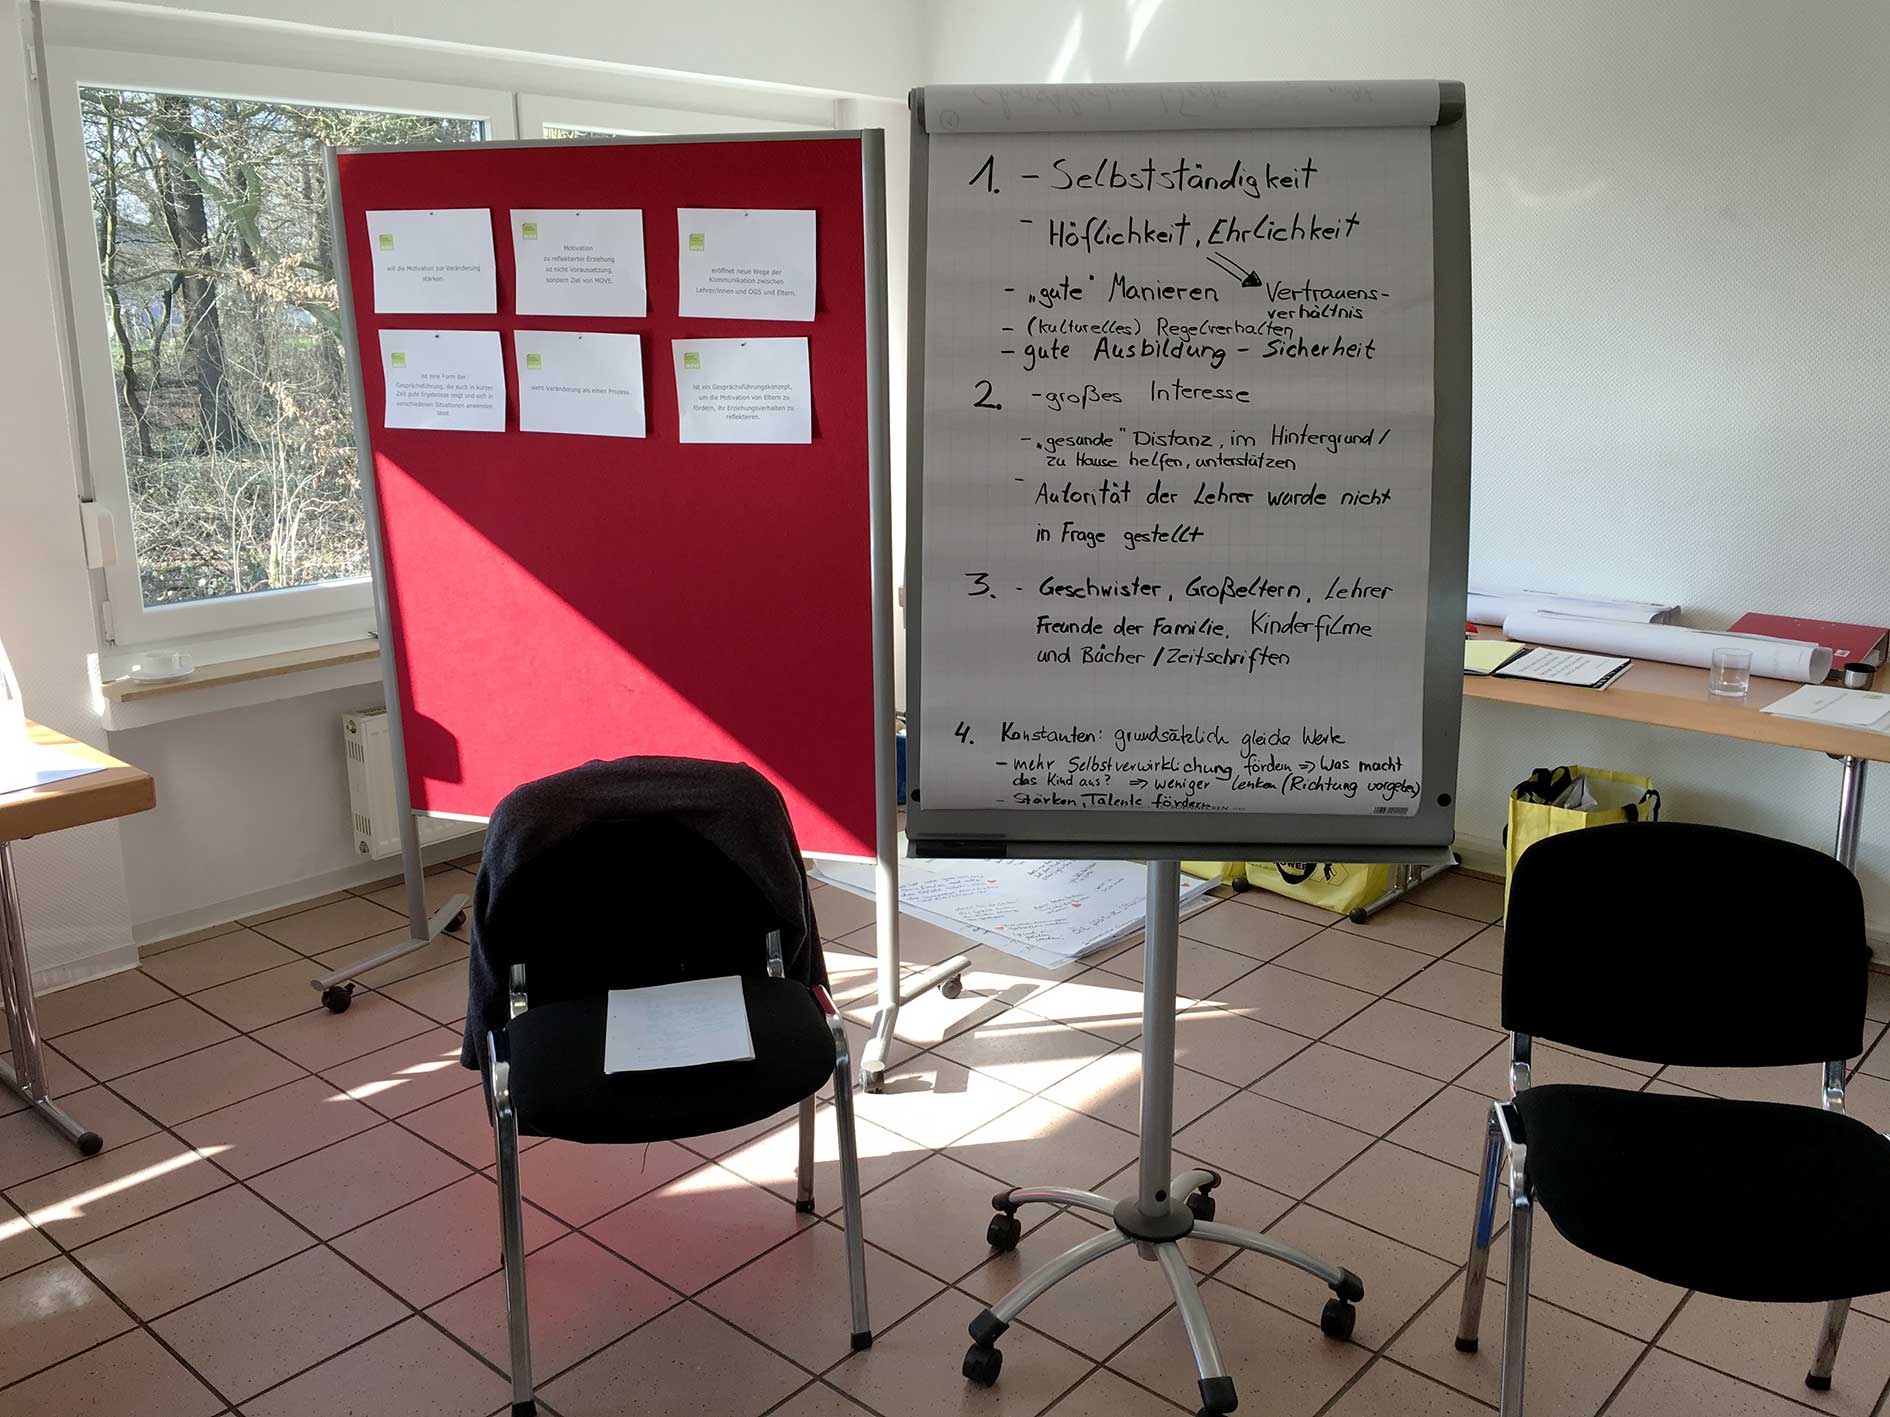 will die Motivation zur Veränderung
stärken.
Motivation
zu reflektierter Erziehung
ist nicht Voraussetzung,
sondern Ziel von MOVE.
eröffnet neue Wege der
Kommunikation zwischen
Lehrer/innen und OGS und Eltern.
ist eine Form der
Gesprächsführung, die auch in kurzer
Zeit gute Ergebnisse zeigt und sich in
verschiedenen Situationen anwenden
lässt
sieht Veränderung als einen Prozess.
ist ein Gesprächsführungskonzept,
um die Motivation von Eltern zu
fördern, ihr Erziehungsverhalten zu
reflektieren.
1. - Selbstständigkeit
- Höflichkeit, Ehrlichkeit
- "gute" Manieren
Vertrauens-
verhältnis
- (kulturelles) Regelverhalten
- gute Ausbildung - Sicherheit
2. - großes Interesse
- "gesunde" Distanz, im Hintergrund /
zu Hause helfen, unterstützen
- Autorität der Lehrer wurde nicht
in Frage gestellt
3. - Geschwister, Großeltern, Lehrer
Freunde der Familie, Kinderfilme
und Bücher / Zeitschriften
4. Konstanten: grundsätzlich gleiche Werte
- mehr Selbstverwirklichung fördern => Was macht
das Kind aus? => weniger lenken (Richtung vorgeben)
- Stärken, Talente fördern